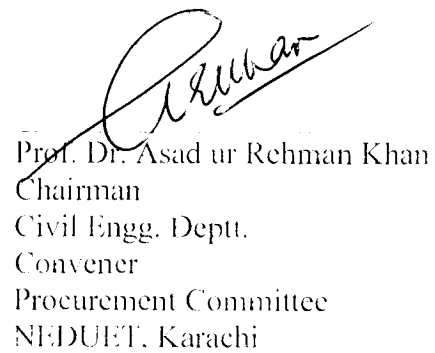 Prof. Dr. Asad ur Rehman Khan
Chairman
Civil Engg. Deptt.
Convener
Procurement Committee
NEDUET, Karachi